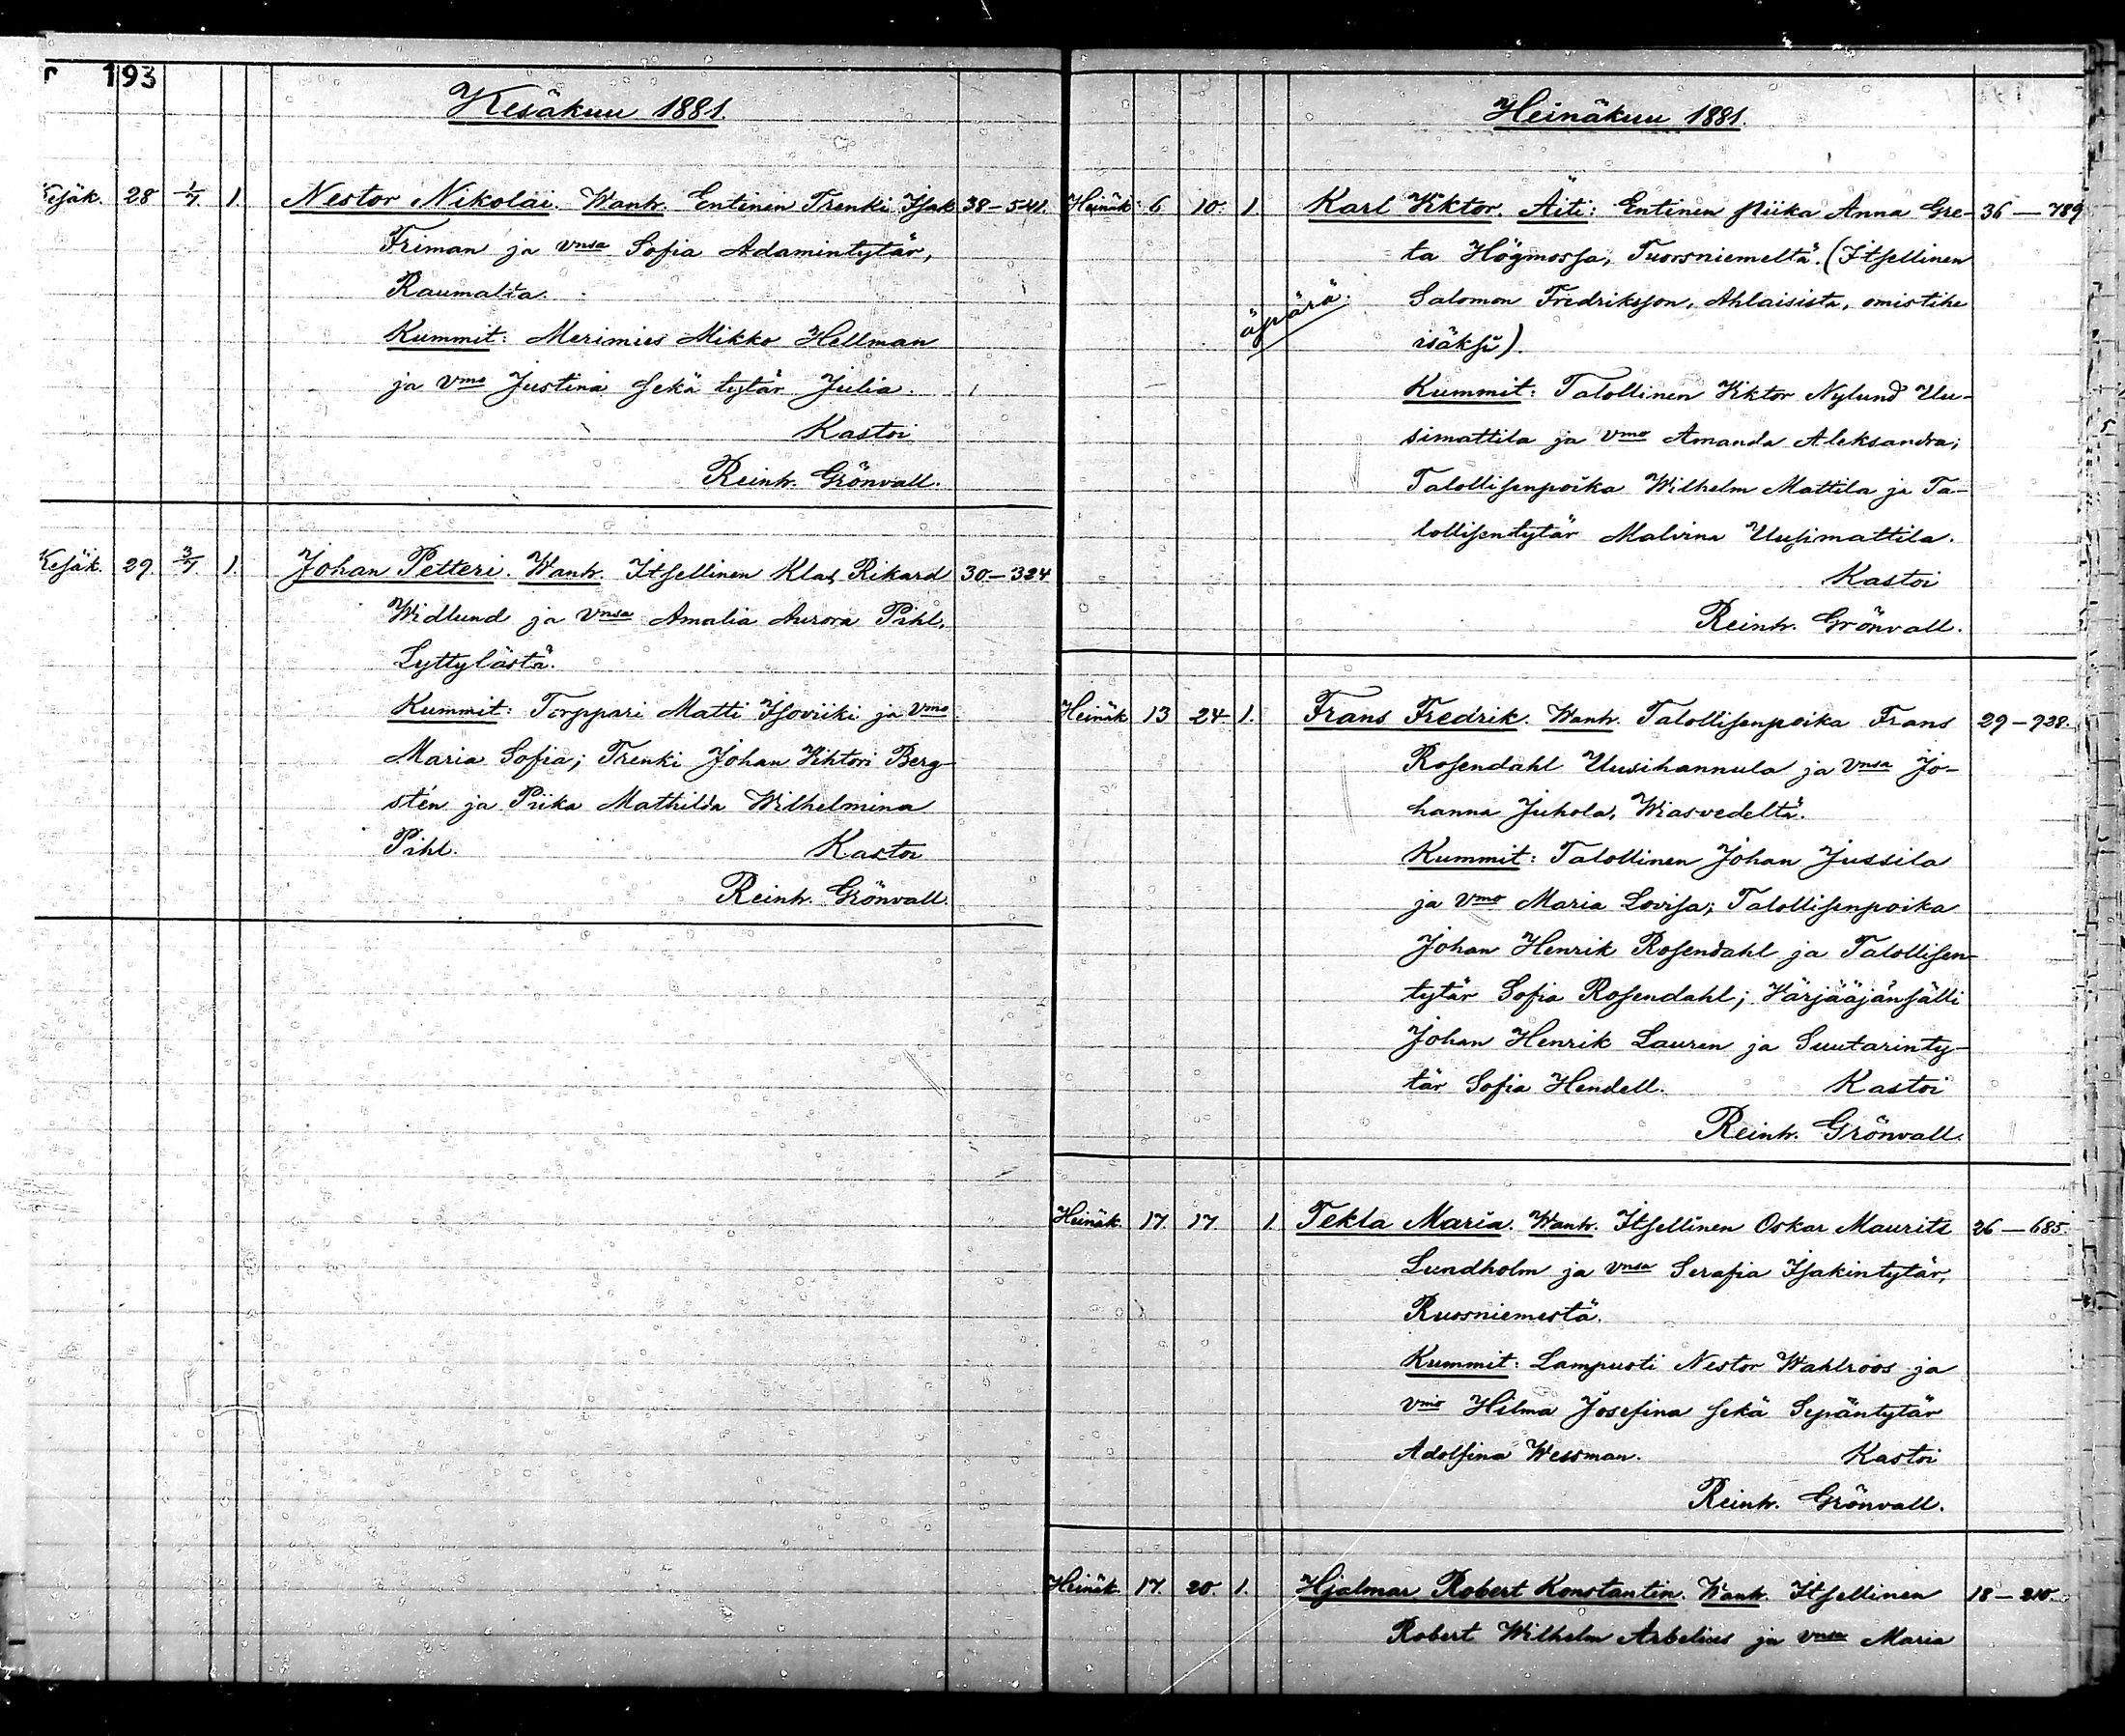 193
Kesäkuu 1881.
Kesäk. 28 1/7 1. Nestor Nikolai. Wanh. Entinen Trenki Isak 38–541.
Friman ja vnsa Sofia Adamintytär,
Raumalta.
Kummit: Merimies Mikko Hellman
ja vmo Justina sekä tytär Julia.
Kastoi
Reinh. Grönvall.
Kesäk. 29. 3/7. 1. Johan Petteri. Wanh. Itsellinen Klas Rikard 30–324
Widlund ja vnsa Amalia Aurora Pihl,
Lyttylästä.
Kummit: Torppari Matti Isoviiki ja vmo
Maria Sofia; Trenki Johan Vihtori Berg-
stén ja Piika Mathilda Wilhelmina
Pihl. Kastoi
Reinh. Grönvall.
Heinäkuu 1881.
Heinäk. 6 10. 1. Karl Viktor. Äiti: Entinen piika Anna Gre- 36–789
ta Högmossa, Tuorsniemeltä. (Itsellinen
äpärä. Salomon Fredriksson, Ahlaisista, omistihe
isäksi).
Kummit: Talollinen Viktor Nylund Uu-
simattila ja vmo Amanda Aleksandra;
Talollisenpoika Wilhelm Mattila ja Ta-
lollisentytär Malvina Uusimattila.
Kastoi
Reinh. Grönvall.
Heinäk 13 24. 1. Frans Fredrik. Wanh. Talollisenpoika Frans 29–928.
Rosendahl Uusihannula ja vnsa Jo-
hanna Juhola, Wiasvedeltä.
Kummit: Talollinen Johan Jussila
ja vmo Maria Lovisa; Talollisenpoika
Johan Henrik Rosendahl ja Talollisen-
tytär Sofia Rosendahl; Värjääjänsälli
Johan Henrik Lauren ja Suutarinty-
tär Sofia Hendell. Kastoi
Reinh. Grönvall.
Heinäk. 17. 17. 1. Tekla Maria. Wanh. Itsellinen Oskar Maurits 26–685.
Lundholm ja vnsa Serafia Isakintytär,
Ruosniemestä.
Kummit: Lampuoti Nestor Wahlroos ja
vmo Hilma Josefina sekä Sepäntytär
Adolfina Wessman. Kastoi
Reinh. Grönvall.
Heinäk. 17. 20. 1. Hjalmar Robert Konstantin. Wanh. Itsellinen 18–210.
Robert Wilhelm Arbelius ja vnsa Maria